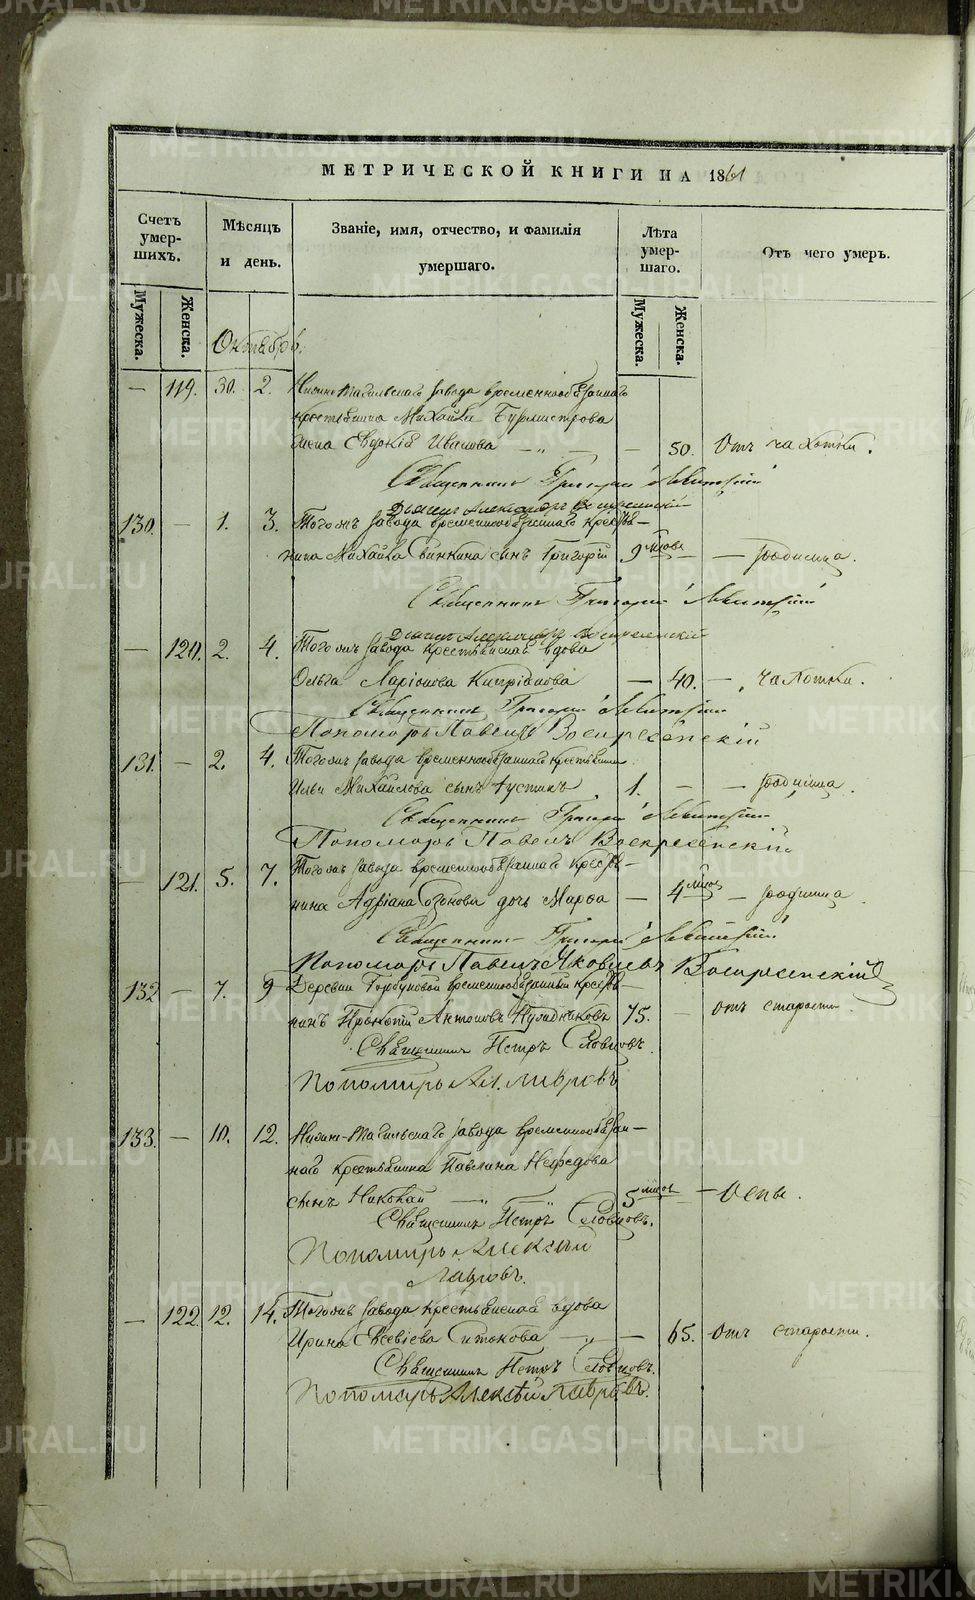 МЕТРИЧЕСКОЙ КНИГИ НА 1861
Счетъ умершихъ.
Мѣсяцъ и день.
Званіе, имя, отчество, и фамилія умершаго.
Лѣта умершаго.
Отъ чего умеръ.
Мужеска.
Женска.
Мужеска.
Женска.
Октябрь.
— 119. 30. 2. Нижне-Тагильскаго завода временнообязаннаго
крестьянина Михайла Бурмистрова
жена Евдокія Иванова — 50. Отъ чахотки.
Священникъ Григорій
Дьячекъ Александръ Воскресенскій
130. — 1. 3. Тогожъ завода временнообязаннаго крестья-
нина Михайла сынъ Григорій 9 мѣсяц. — родимца.
Священникъ Григорій
Дьячекъ Александръ Воскресенскій
— 120. 2. 4. Тогожъ завода крестьянская вдова
Ольга Ларіонова Кипріянова — 40. — чахотки.
Священникъ Григорій
Пономарь Павелъ Воскресенскій
131. — 2. 4. Тогожъ завода временнообязаннаго крестьянина
Ильи Михайлова сынъ Іустинъ 1. — — родимца.
Священникъ Григорій
Пономарь Павелъ Воскресенскій
— 121. 5. 7. Тогожъ завода временнообязаннаго крестья-
нина Адріана дочь Марфа — 4 мѣсяц — родимца.
Священникъ Григорій
Пономарь Павелъ Яковлевъ Воскресенскій
132 — 7. 9 Деревни Горбуновой временнообязанный крестья-
нинъ Прокопій Антоновъ 75. — отъ старости.
Священникъ Петръ Словцовъ.
Пономарь Ал. Лавровъ
133. — 10. 12. Нижне-Тагильскаго завода временнообязан-
наго крестьянина Павлина Нефедова
сынъ Николай — 5 мѣсяц — Оспы.
Священникъ Петръ Словцовъ.
Пономарь Алексѣй
Лавровъ.
— 122. 12. 14. Тогожъ завода крестьянская вдова
Ирина Евсевіева Ситокова — — 65. отъ старости.
Священникъ Петръ Словцовъ.
Пономарь Алексѣй Лавровъ.
METRIKI.GASO-URAL.RU